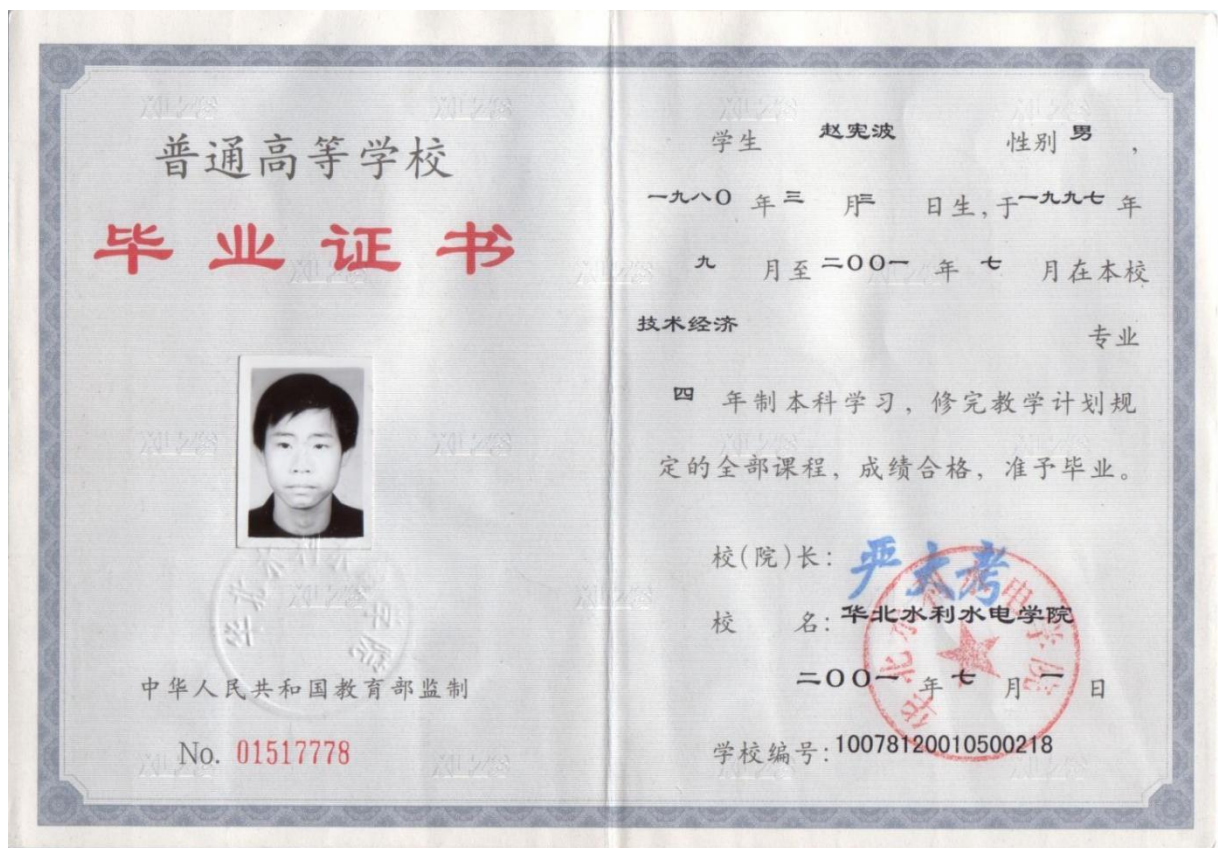 普通高等学校
毕业证书
中华人民共和国教育部监制
No. 01517778
学生 赵宪波 性别 男 ,
一九八〇 年 三 月 三 日生,于 一九九七 年
九 月至 二〇〇一 年 七 月在本校
技术经济 专业
四 年制本科学习,修完教学计划规
定的全部课程,成绩合格,准予毕业。
校(院)长: 严大考
校 名: 华北水利水电学院
二〇〇一 年 七 月 一 日
学校编号: 100781200105002​18
华北水利水电学院
华北水利水电学院